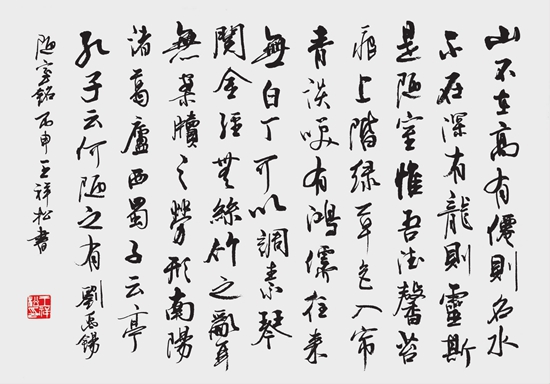 山不在高有僊則名水
不在深有龍則靈斯
是陋室惟吾德馨苔
痕上階緑草色入帘
青談笑有鴻儒往来
無白丁可以調素琴
閲金經無絲竹之亂耳
無案牘之勞形南陽
諸葛廬西蜀子云亭
孔子云何陋之有 劉禹錫
陋室銘 丙申 王祥松書